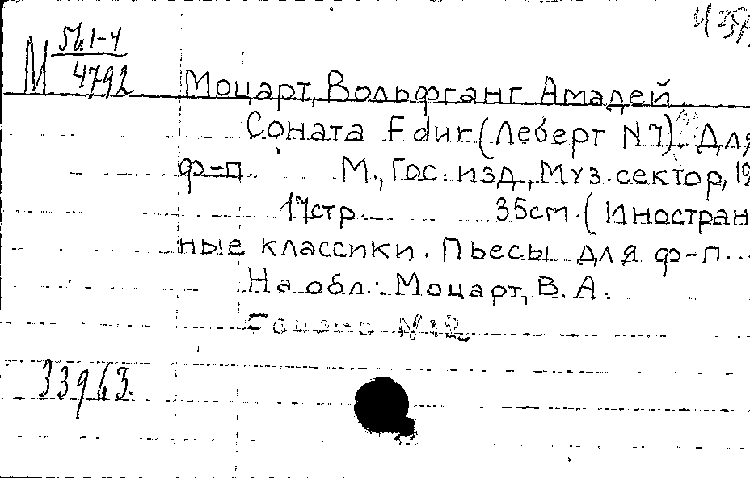 М 56.1-4
4792
Моцарт, Вольфганг Амадей
Соната F dur (Леберт N 7). Для
ф-п М., Гос. изд., Муз. сектор, 19
17стр. 35cm. (Иностран
ные классики. Пьесы для ф-п...
На обл.: Моцарт, В. А.
Соната N 12
33963.